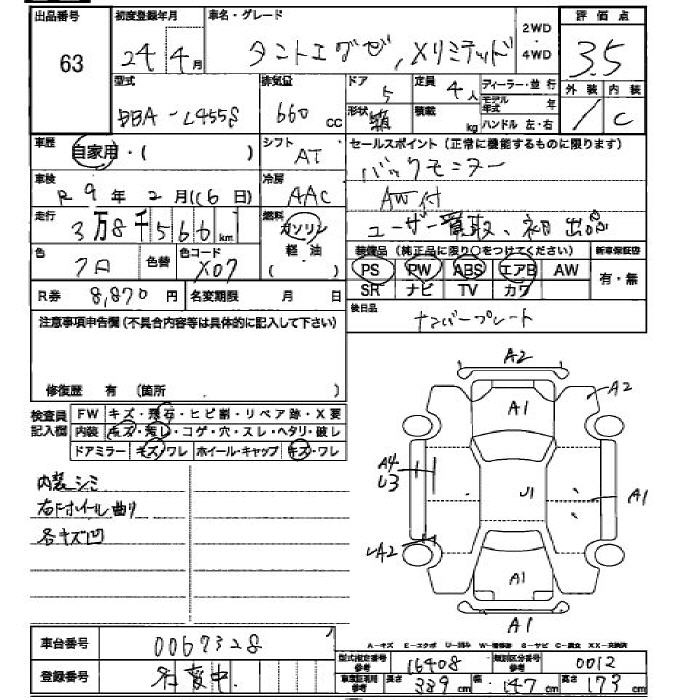 出品番号 63
初度登録年月 24年4月
車名・グレード タントエグゼ,Xリミテッド
2WD・4WD
評価点 3.5
外装 / 内装 C
型式 DBA-L455S
排気量 660 cc
ドア 5
形状 箱
定員 4人
積載 kg
ディーラー・並行
モデル年式 年
ハンドル 左・右
車歴 自家用・( )
シフト AT
車検 R9年2月(6日)
冷房 AAC
走行 3万8千566km
燃料 ガソリン 軽・油 ( )
色 クロ 色替
色コード X07
R券 8,870円
名変期限 月 日
セールスポイント(正常に機能するものに限ります)
バックモニター
AW付
ユーザー買取、初出品
装備品(純正品に限り○をつけてください)
新車保証書
PS PW ABS エアB AW
有・無
SR ナビ TV カワ
後日品 ナンバープレート
注意事項申告欄(不具合内容等は具体的に記入して下さい)
修復歴 有 (箇所 )
検査員記入欄
FW キズ・飛石・ヒビ割・リペア跡・X要
内装 キズ・汚レ・コゲ・穴・スレ・ヘタリ・破レ
ドアミラー キズ・ワレ ホイール・キャップ キズ・ワレ
内装シミ
右Fホイール曲り
各キズ凹
A2
A1
A2
A4
U3
U1
A1
A2
A1
A1
A-キズ E-エクボ U-凹み W-補修跡 S-サビ C-腐食 XX-交換済
車台番号 0067328
登録番号 名変中
型式指定番号参考 16408
類別区分番号参考 0012
車庫証明用参考 長さ 339cm 幅 147cm 高さ 173cm